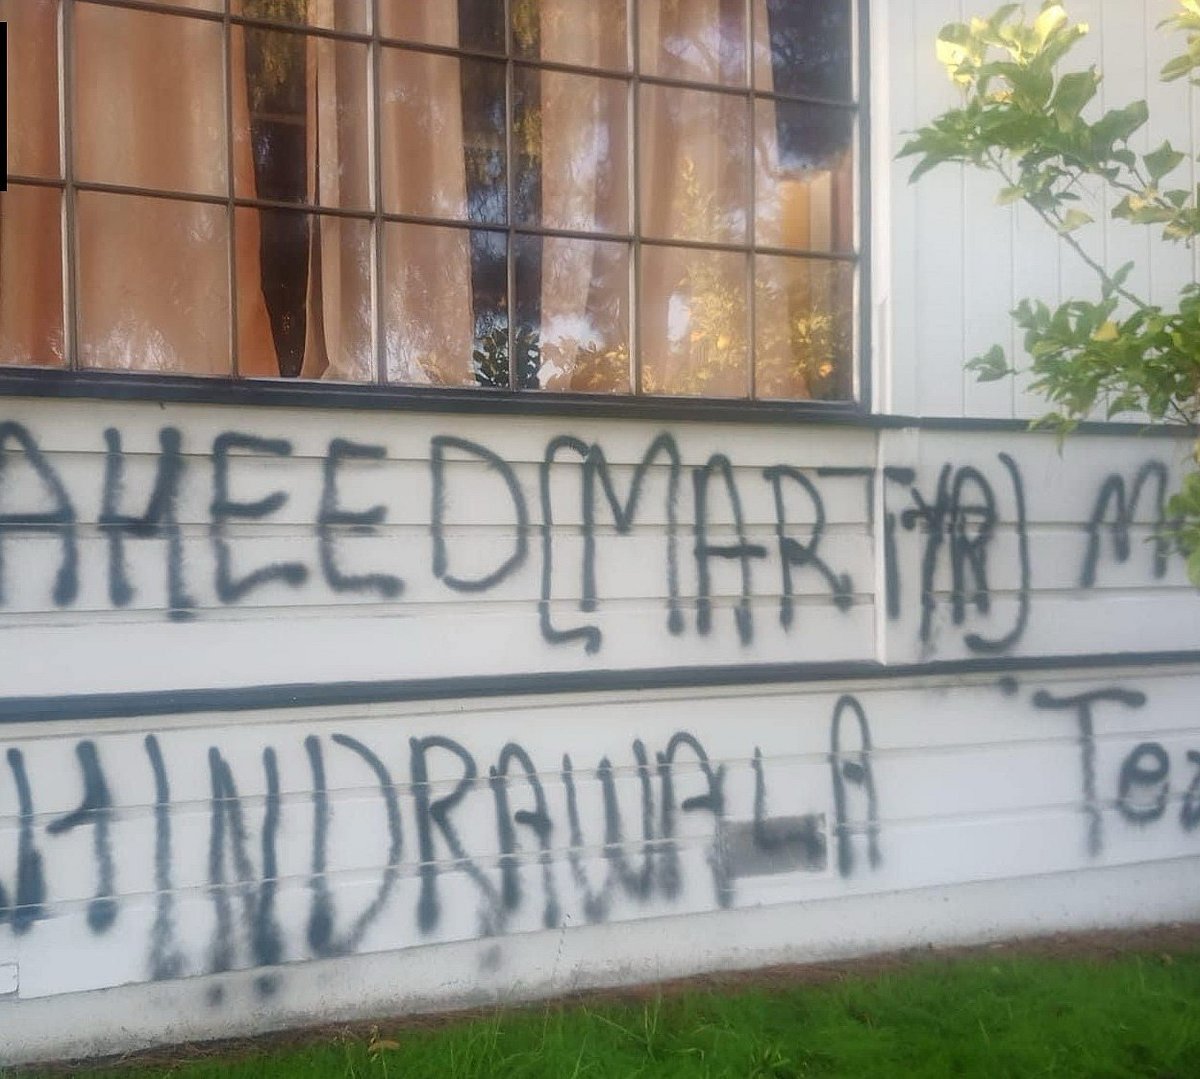 AHEED [MARTYR) M
HINDRAWALA Te